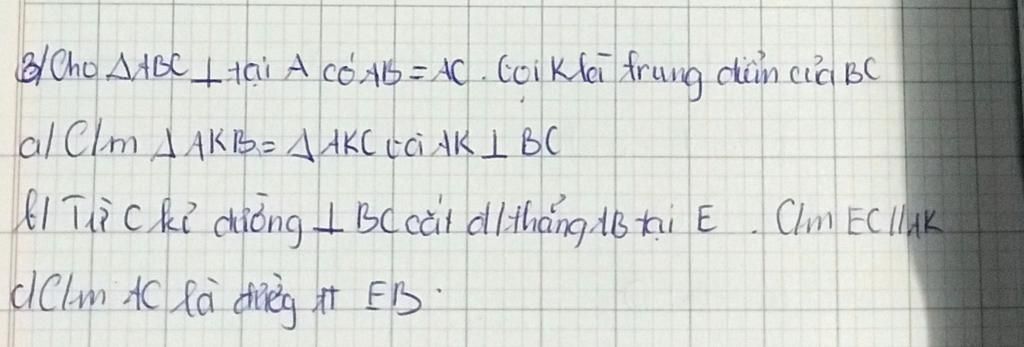 3/ Cho △ABC ⊥ tại A có AB = AC. Gọi K là trung điểm của BC
a/ C/m △AKB = △AKC và AK ⊥ BC
b/ Từ C kẻ đường ⊥ BC cắt đ/thẳng AB tại E. C/m EC // AK
c/ C/m AC là đường tt EB.